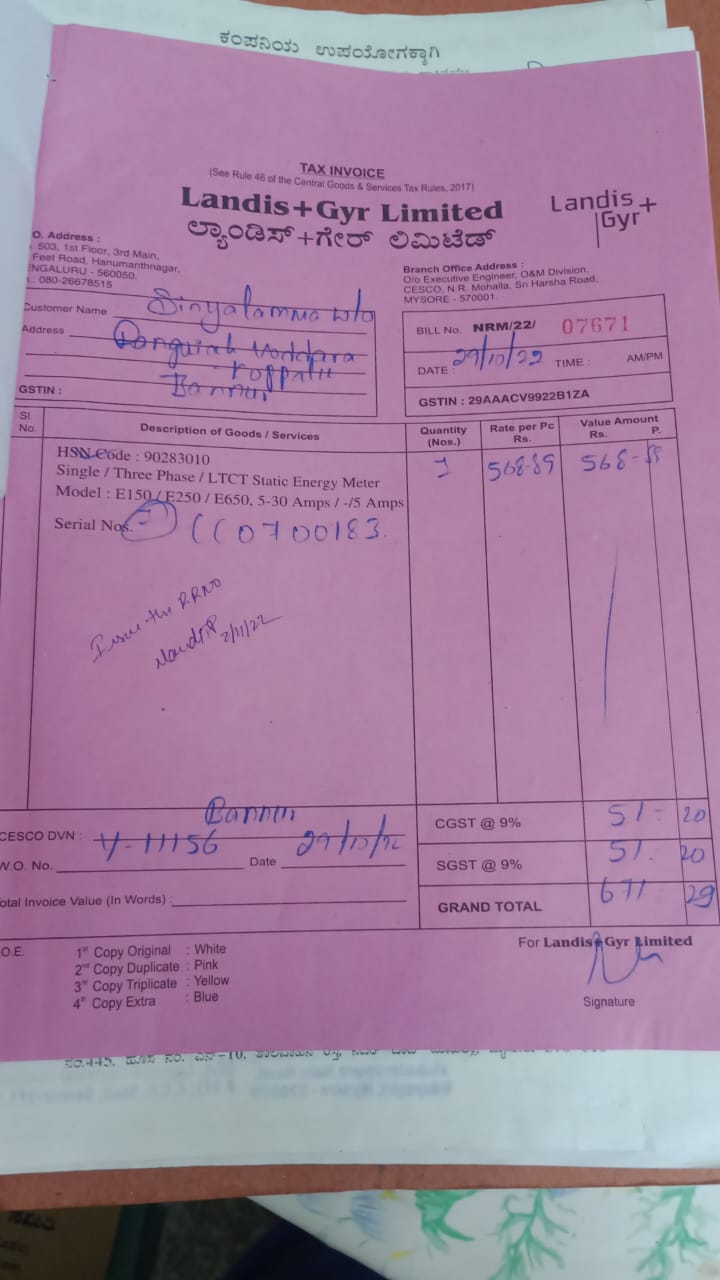 ಕಂಪನಿಯ ಉಪಯೋಗಕ್ಕಾಗಿ
TAX INVOICE
(See Rule 46 of the Central Goods & Services Tax Rules, 2017)
Landis+Gyr Limited
ಲ್ಯಾಂಡಿಸ್+ಗೇರ್ ಲಿಮಿಟೆಡ್
Landis+
Gyr
O. Address :
503, 1st Floor, 3rd Main,
Feet Road, Hanumanthnagar,
ENGALURU - 560050.
: 080-26678515
Branch Office Address :
O/o Executive Engineer, O&M Division,
CESCO, N.R. Mohalla, Sri Harsha Road,
MYSORE - 570001.
Customer Name W/o
Address
Koppalu
Bannur
GSTIN :
BILL No. NRM/22/ 07671
DATE : 29/10/22 TIME : AM/PM
GSTIN : 29AAACV9922B1ZA
Sl. No. Description of Goods / Services Quantity (Nos.) Rate per Pc Rs. Value Amount Rs. P.
HSN Code : 90283010 1 568-89 568-
Single / Three Phase / LTCT Static Energy Meter
Model : E150 / E250 / E650, 5-30 Amps / -/5 Amps
Serial Nos. 0700183
Issue the RRNO
2/11/22
Bannur
CESCO DVN : Y-11156 29/10/22
W.O. No. Date
otal Invoice Value (In Words) :
CGST @ 9% 51 20
SGST @ 9% 51 20
GRAND TOTAL 671 29
.O.E.
1st Copy Original : White
2nd Copy Duplicate : Pink
3rd Copy Triplicate : Yellow
4th Copy Extra : Blue
For Landis+Gyr Limited
Signature